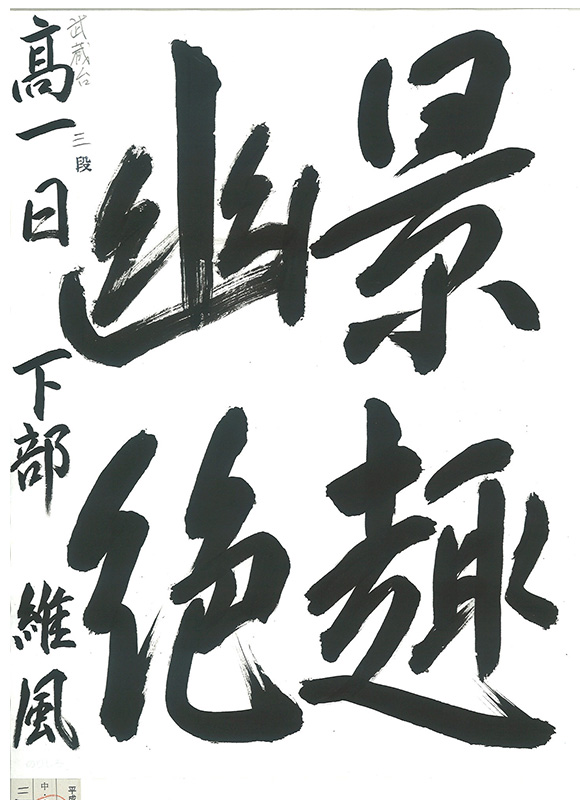 景趣
幽絶
三段
武蔵台
高一日下部維風
平成
中・
二